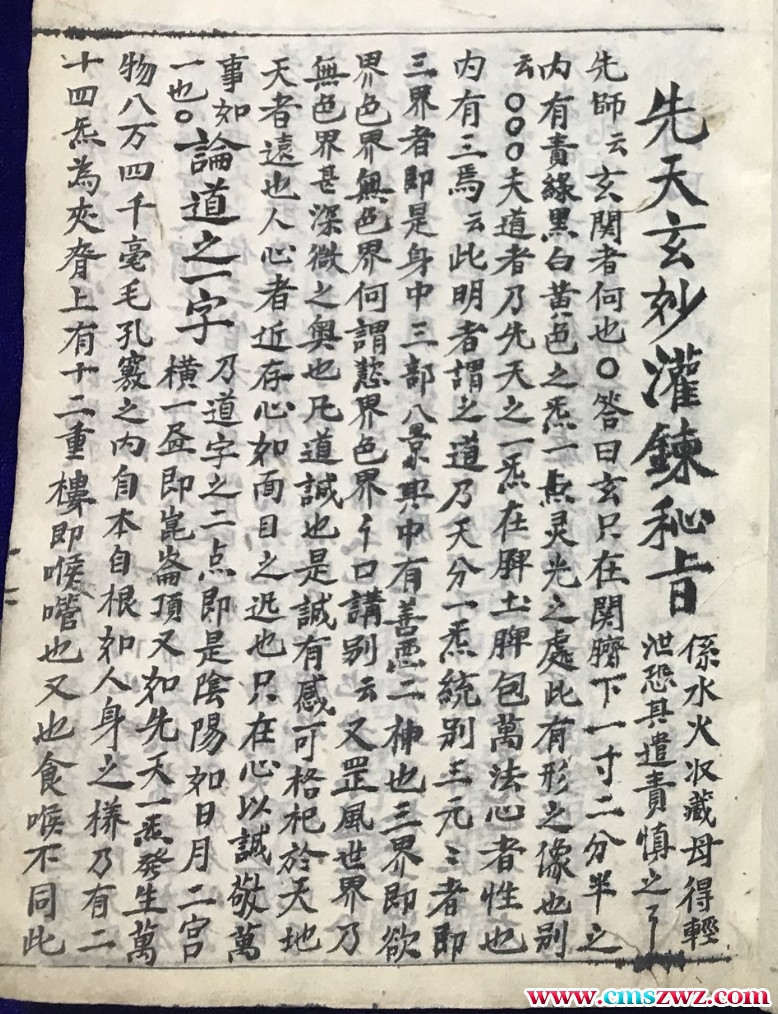 先天玄妙灌鍊秘旨
係水火收藏毋得輕
泄恐其遣責慎之々
先師云玄関者何也〇答曰玄只在関臍下一寸二分半之
内有青緣黒白黄色之炁一点灵光之處此有形之像也别
云〇〇〇夫道者乃先天之一炁在脾土脾包萬法心者性也
内有三焉云此明者謂之道乃天分一炁統别三元三者即
三界者即是身中三部八景與中有善悪二神也三界即欲
界色界無色界何謂慾界色界々口講别云又罡風世界乃
無色界甚深微之奥也凡道誠也是誠有感可格祀於天地
天者遠也人心者近存心如面目之近也只在心以誠敬萬
事如論道之一字
乃道字之二点即是陰陽如日月二宮
一也〇
横一画即崑崙頂又如先天一炁發生萬
物八万四千毫毛孔竅之内自本自根如人身之樣乃有二
十四炁為夾脊上有十二重樓即喉嚨也又也食喉不同此
www.cmszwz.com